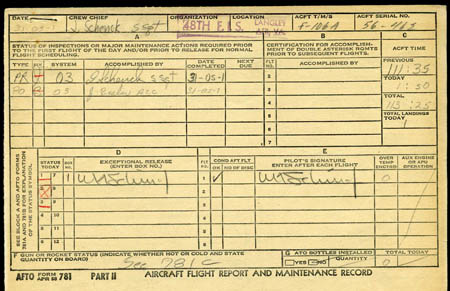 DATE CREW CHIEF ORGANIZATION LOCATION ACFT T/M/S ACFT SERIAL NO.
J. Schenck SSgt 48TH F.I.S. LANGLEY AFB, VA. F-106A
A STATUS OF INSPECTIONS OR MAJOR MAINTENANCE ACTIONS REQUIRED PRIOR TO THE FIRST FLIGHT OF THE DAY AND/OR PRIOR TO RELEASE FOR NORMAL FLIGHT SCHEDULING.
B CERTIFICATION FOR ACCOMPLISHMENT OF DOUBLE ASTERISK ROMTS PRIOR TO SUBSEQUENT FLIGHTS.
C ACFT TIME
TYPE STATION ACCOMPLISHED BY DATE COMPLETED NEXT DUE FLT NO. ACCOMPLISHED BY
PREVIOUS
111:35
PR 03 J Schenck SSgt 31-05-1
TODAY
1:50
PO 03 31-05-1
TOTAL
113:25
TOTAL LANDINGS TODAY
SEE BLOCK A AND AFTO FORMS 781A AND 781B FOR EXPLANATION OF THE STATUS SYMBOL
D E
STATUS TODAY EXCEPTIONAL RELEASE (ENTER BOX NO.) FLT NO. COND AFT FLT PILOT'S SIGNATURE (ENTER AFTER EACH FLIGHT) OVER TEMP ENGINE(S) AUX ENGINE OR APU OPERATION
OK NO OF DISC
F GUN OR ROCKET STATUS (INDICATE WHETHER HOT OR COLD AND STATE QUANTITY ON BOARD)
See 781C
G ATO BOTTLES INSTALLED TOTAL TODAY
YES NO QUANTITY 0
AFTO FORM APR 58 781 PART II AIRCRAFT FLIGHT REPORT AND MAINTENANCE RECORD